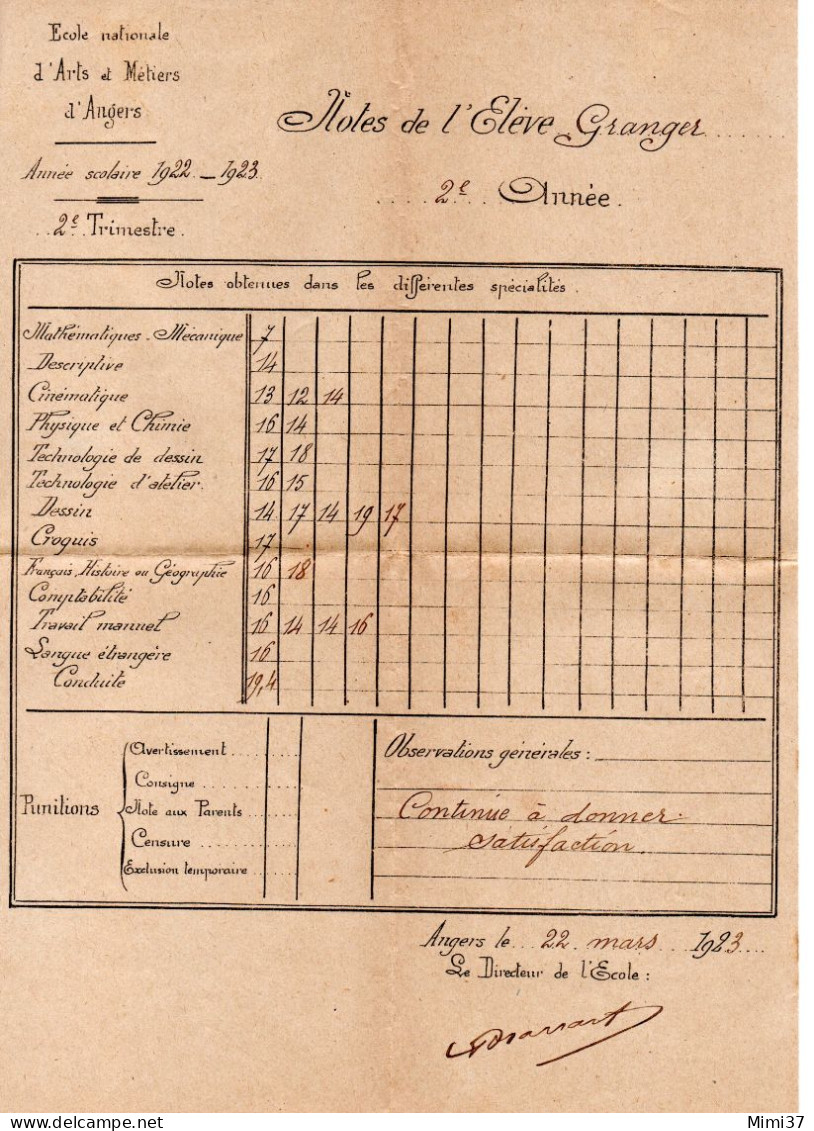 Ecole nationale
d'Arts et Métiers
d'Angers
Année scolaire 1922 - 1923
2e Trimestre.
Notes de l'Elève Granger
2e Année.
Notes obtenues dans les différentes spécialités.
Mathématiques. Mécanique 7
Descriptive 14
Cinématique 13 12 14
Physique et Chimie 16 14
Technologie de dessin 17 18
Technologie d'atelier. 16 15
Dessin 14 17 14 19 17
Croquis 17
Français, Histoire ou Géographie 16 18
Comptabilité 16
Travail manuel 16 14 14 16
Langue étrangère 16
Conduite 19,4
Punitions
Avertissement
Consigne
Note aux Parents
Censure
Exclusion temporaire
Observations générales:
Continue à donner
satisfaction.
Angers le 22 mars 1923
Le Directeur de l'Ecole:
Mimi37